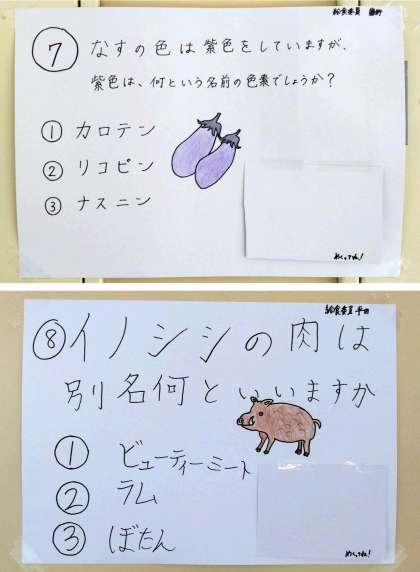 給食委員
⑦ なすの色は紫色をしていますが、
紫色は、何という名前の色素でしょうか？
① カロテン
② リコピン
③ ナスニン
めくってね！
給食委員 平田
⑧ イノシシの肉は
別名何といいますか
① ビューティーミート
② ラム
③ ぼたん
めくってね！